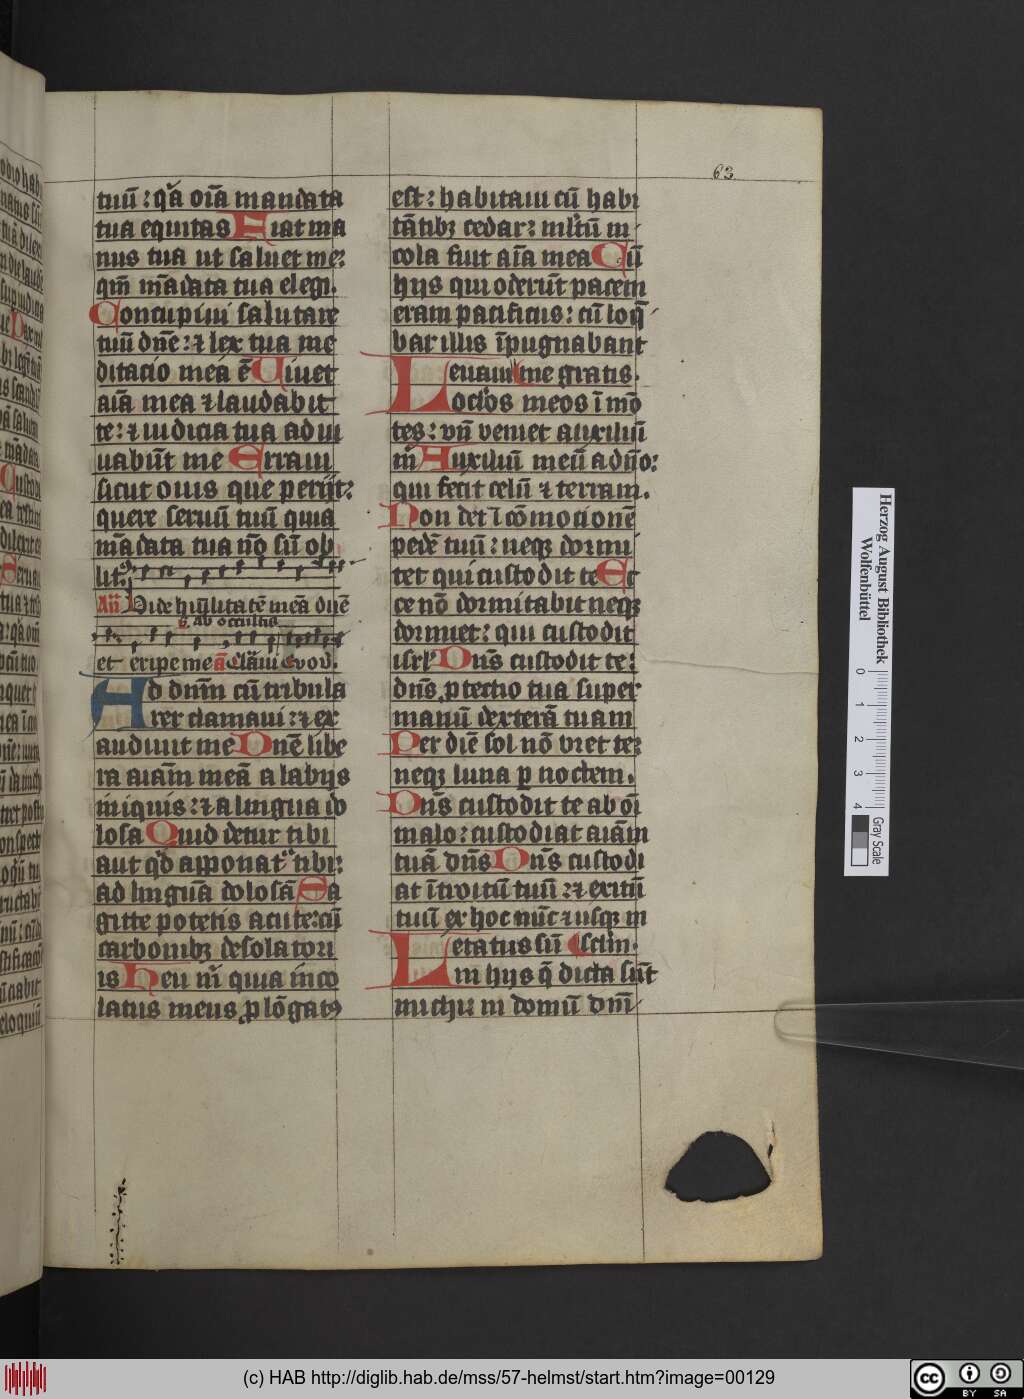 63
tuū : q̄a oīa mandata
tua equitas Fiat ma
nus tua ut saluet me :
qm̄ mādata tua elegi .
Concupiui salutare
tuū dn̄e : ⁊ lex tua me
ditacio mēa ē Uiuet
aīa mea ⁊ laudabit
te : ⁊ iudicia tua adiu
uabūt me Erraui
sicut ouis que perijt :
quere seruū tuū quia
mādata tua nō sū ob
lit9
Añ Vide humilitatē meā dn̄e
ab occultis
et eripe me a Clāui Euou .
Ad dnm̄ cū tribula
rer clamaui : ⁊ ex
audiuit me Dn̄e libe
ra aīam meā a labijs
iniquis : ⁊ a lingua do
losa Quid detur tibi
aut qd̄ apponat᷑ tibi :
ad linguā dolosā Sa
gitte potētis acute : cū
carbonibꝫ desolatori
is Heu m̄ quia inco
latus meus ꝓlōgatꝰ
est : habitaui cū habi
tātibꝫ cedar : ml̄tū in
cola fuit aīa mea Cū
hijs qui oderūt pacem
eram pacificus : cū loq̄
bar illis īpugnabant
Leuaui me gratis .
oclos meos ī mō
tes : vn̄ veniet auxiliū
m̄ Auxiliū meū a dn̄o :
qui fecit celū ⁊ terram .
Non det ī cōmocionē
pedē tuū : neqꝫ dormi
tet qui custodit te Ec
ce nō dormitabit neqꝫ
dormiet : qui custodit
isrl̄ Dn̄s custodit te :
dn̄s ꝓtectio tua super
manū dexterā tuam
Per diē sol nō vret te :
neqꝫ luna ꝑ noctem .
Dn̄s custodit te ab oī
malo : custodiat aīam
tuā dn̄s Dn̄s custodi
at ītroitū tuū : ⁊ exitū
tuū ex hoc nūc ⁊ usqꝫ in
Letatus sū sclm̄ .
in hijs q̄ dicta sūt
michi : in domū dn̄i
Herzog August Bibliothek
Wolfenbüttel
0 1 2 3 4
Gray Scale
(c) HAB http://diglib.hab.de/mss/57-helmst/start.htm?image=00129
cc BY SA